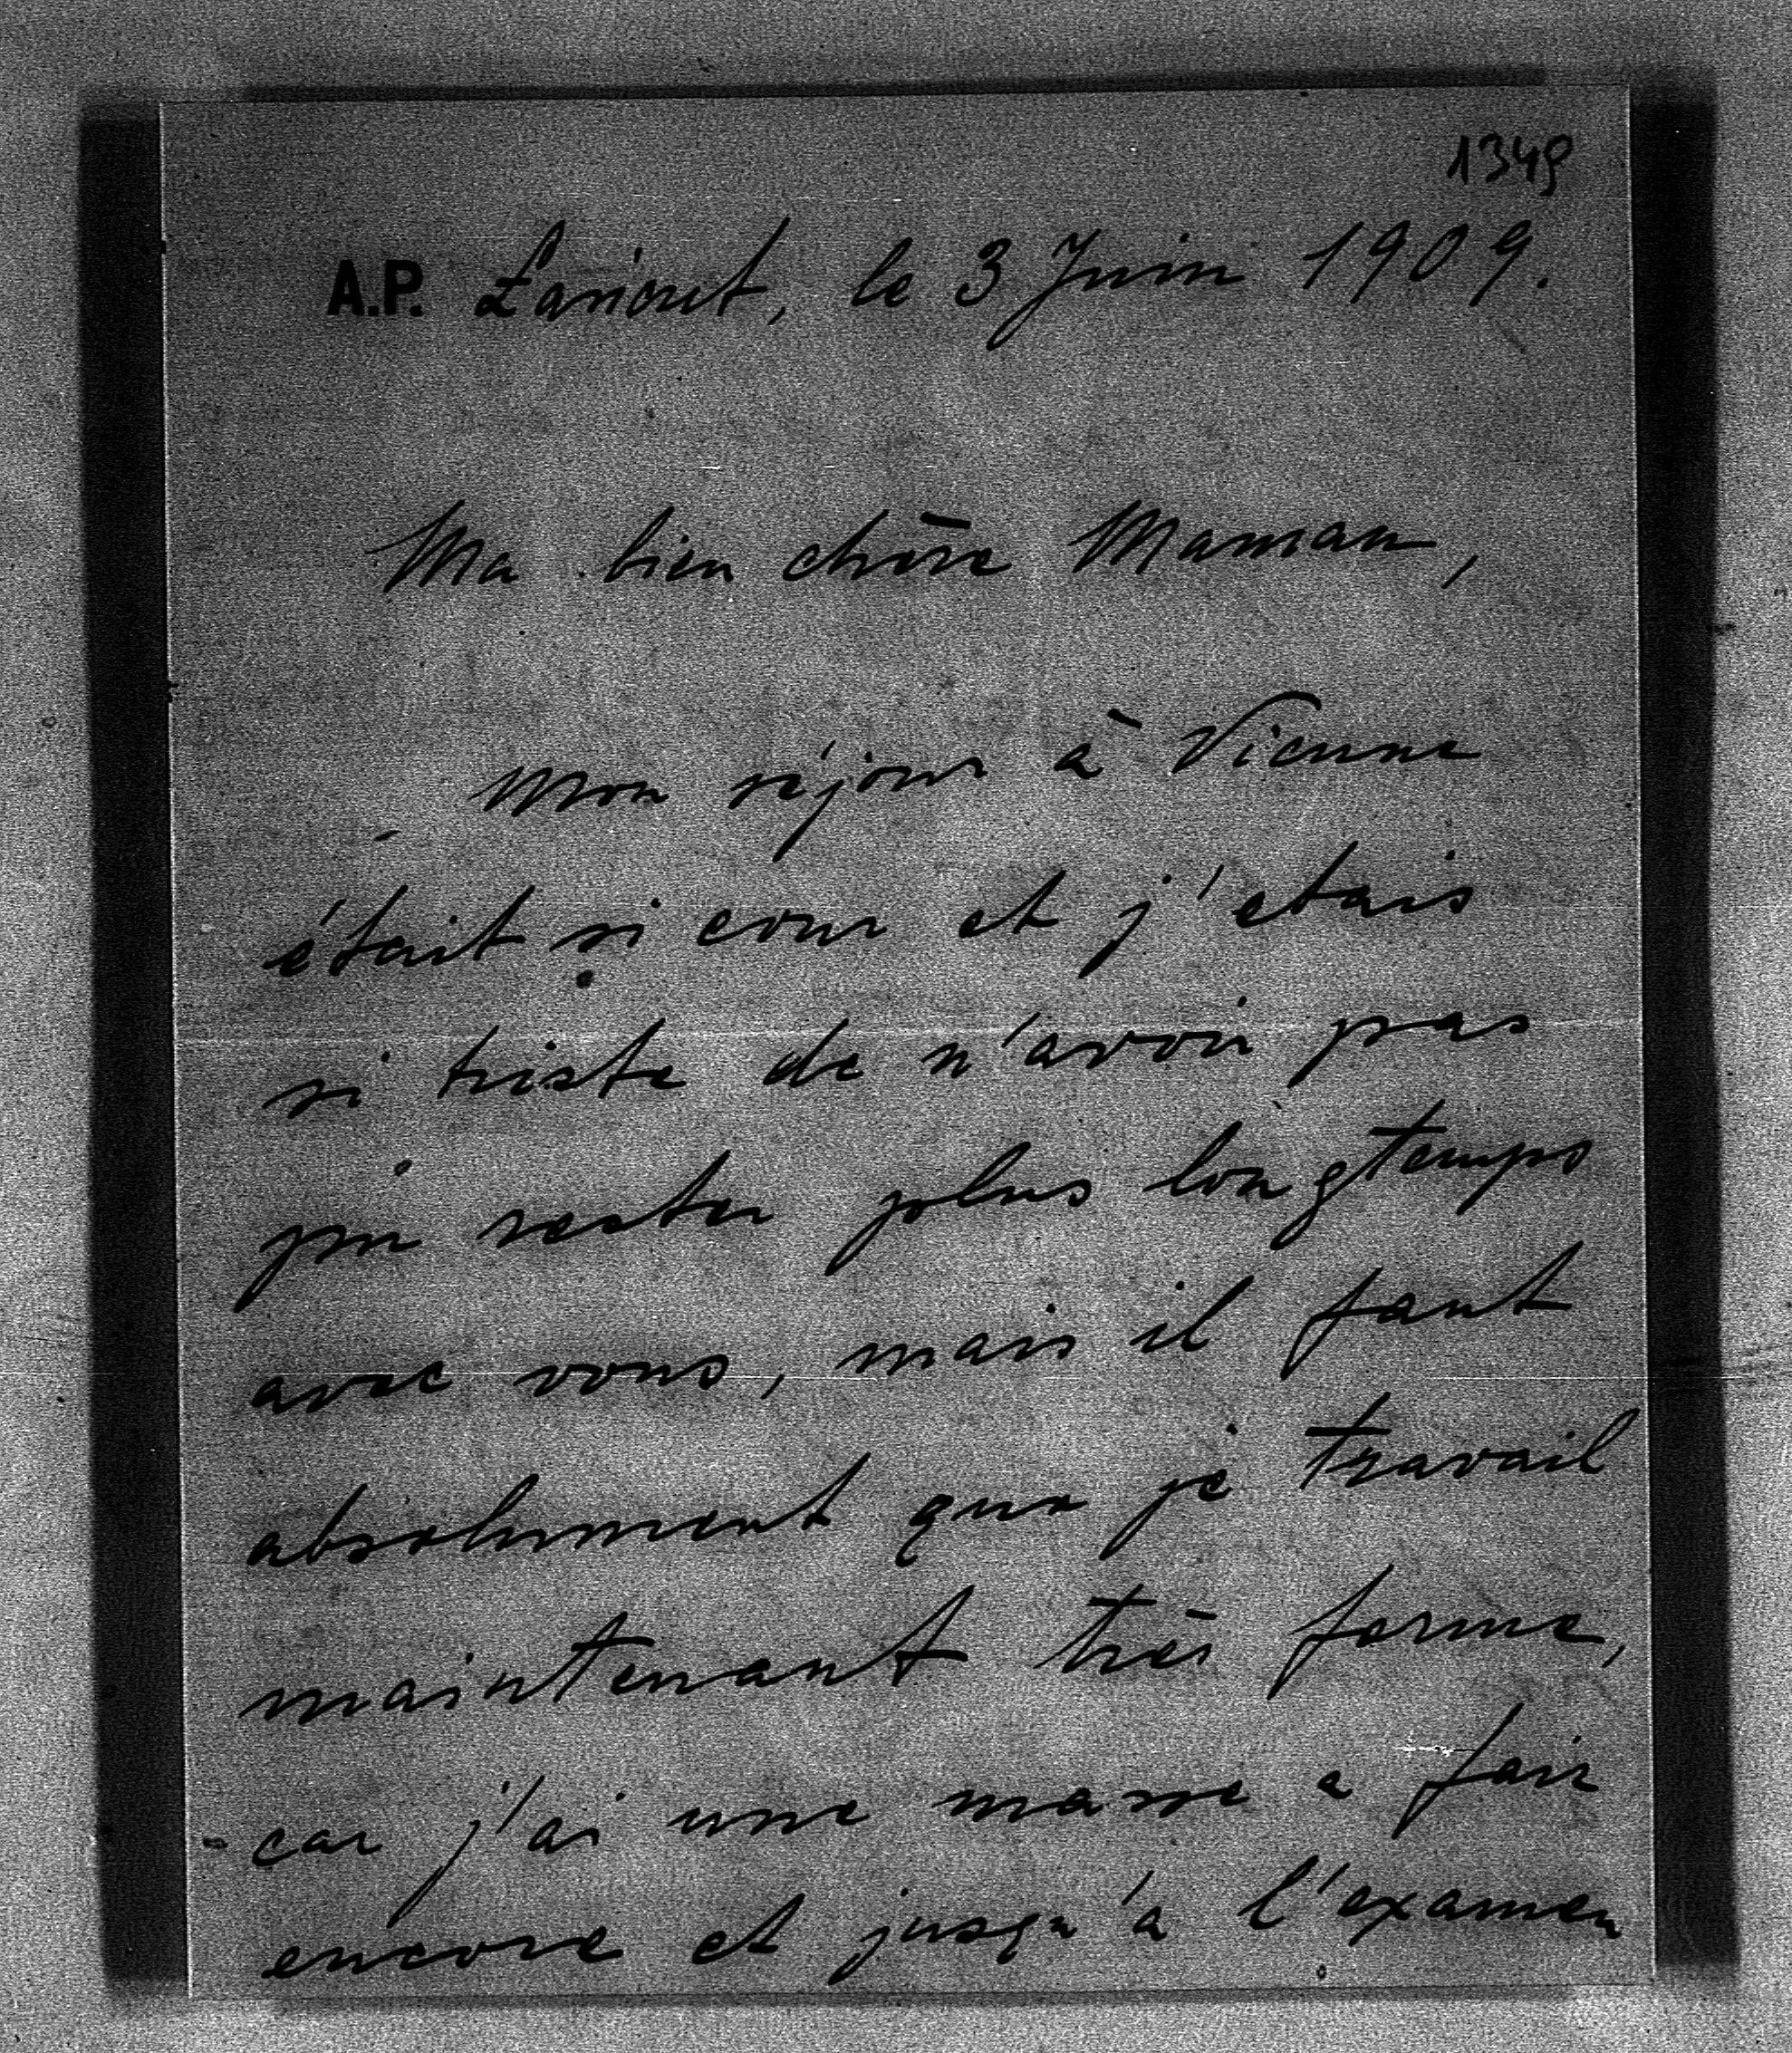 1349
A.P. Lancut, le 3 Juin 1909.
Ma bien chère Maman,
Mon séjour à Vienne
était si cour et j'etais
si triste de n'avoir pas
pu rester plus longtemps
avec vous, mais il faut
absolument que je travail
maintenant très ferme,
car j'ai une masse a fair
encore et jusqu'a l'examen